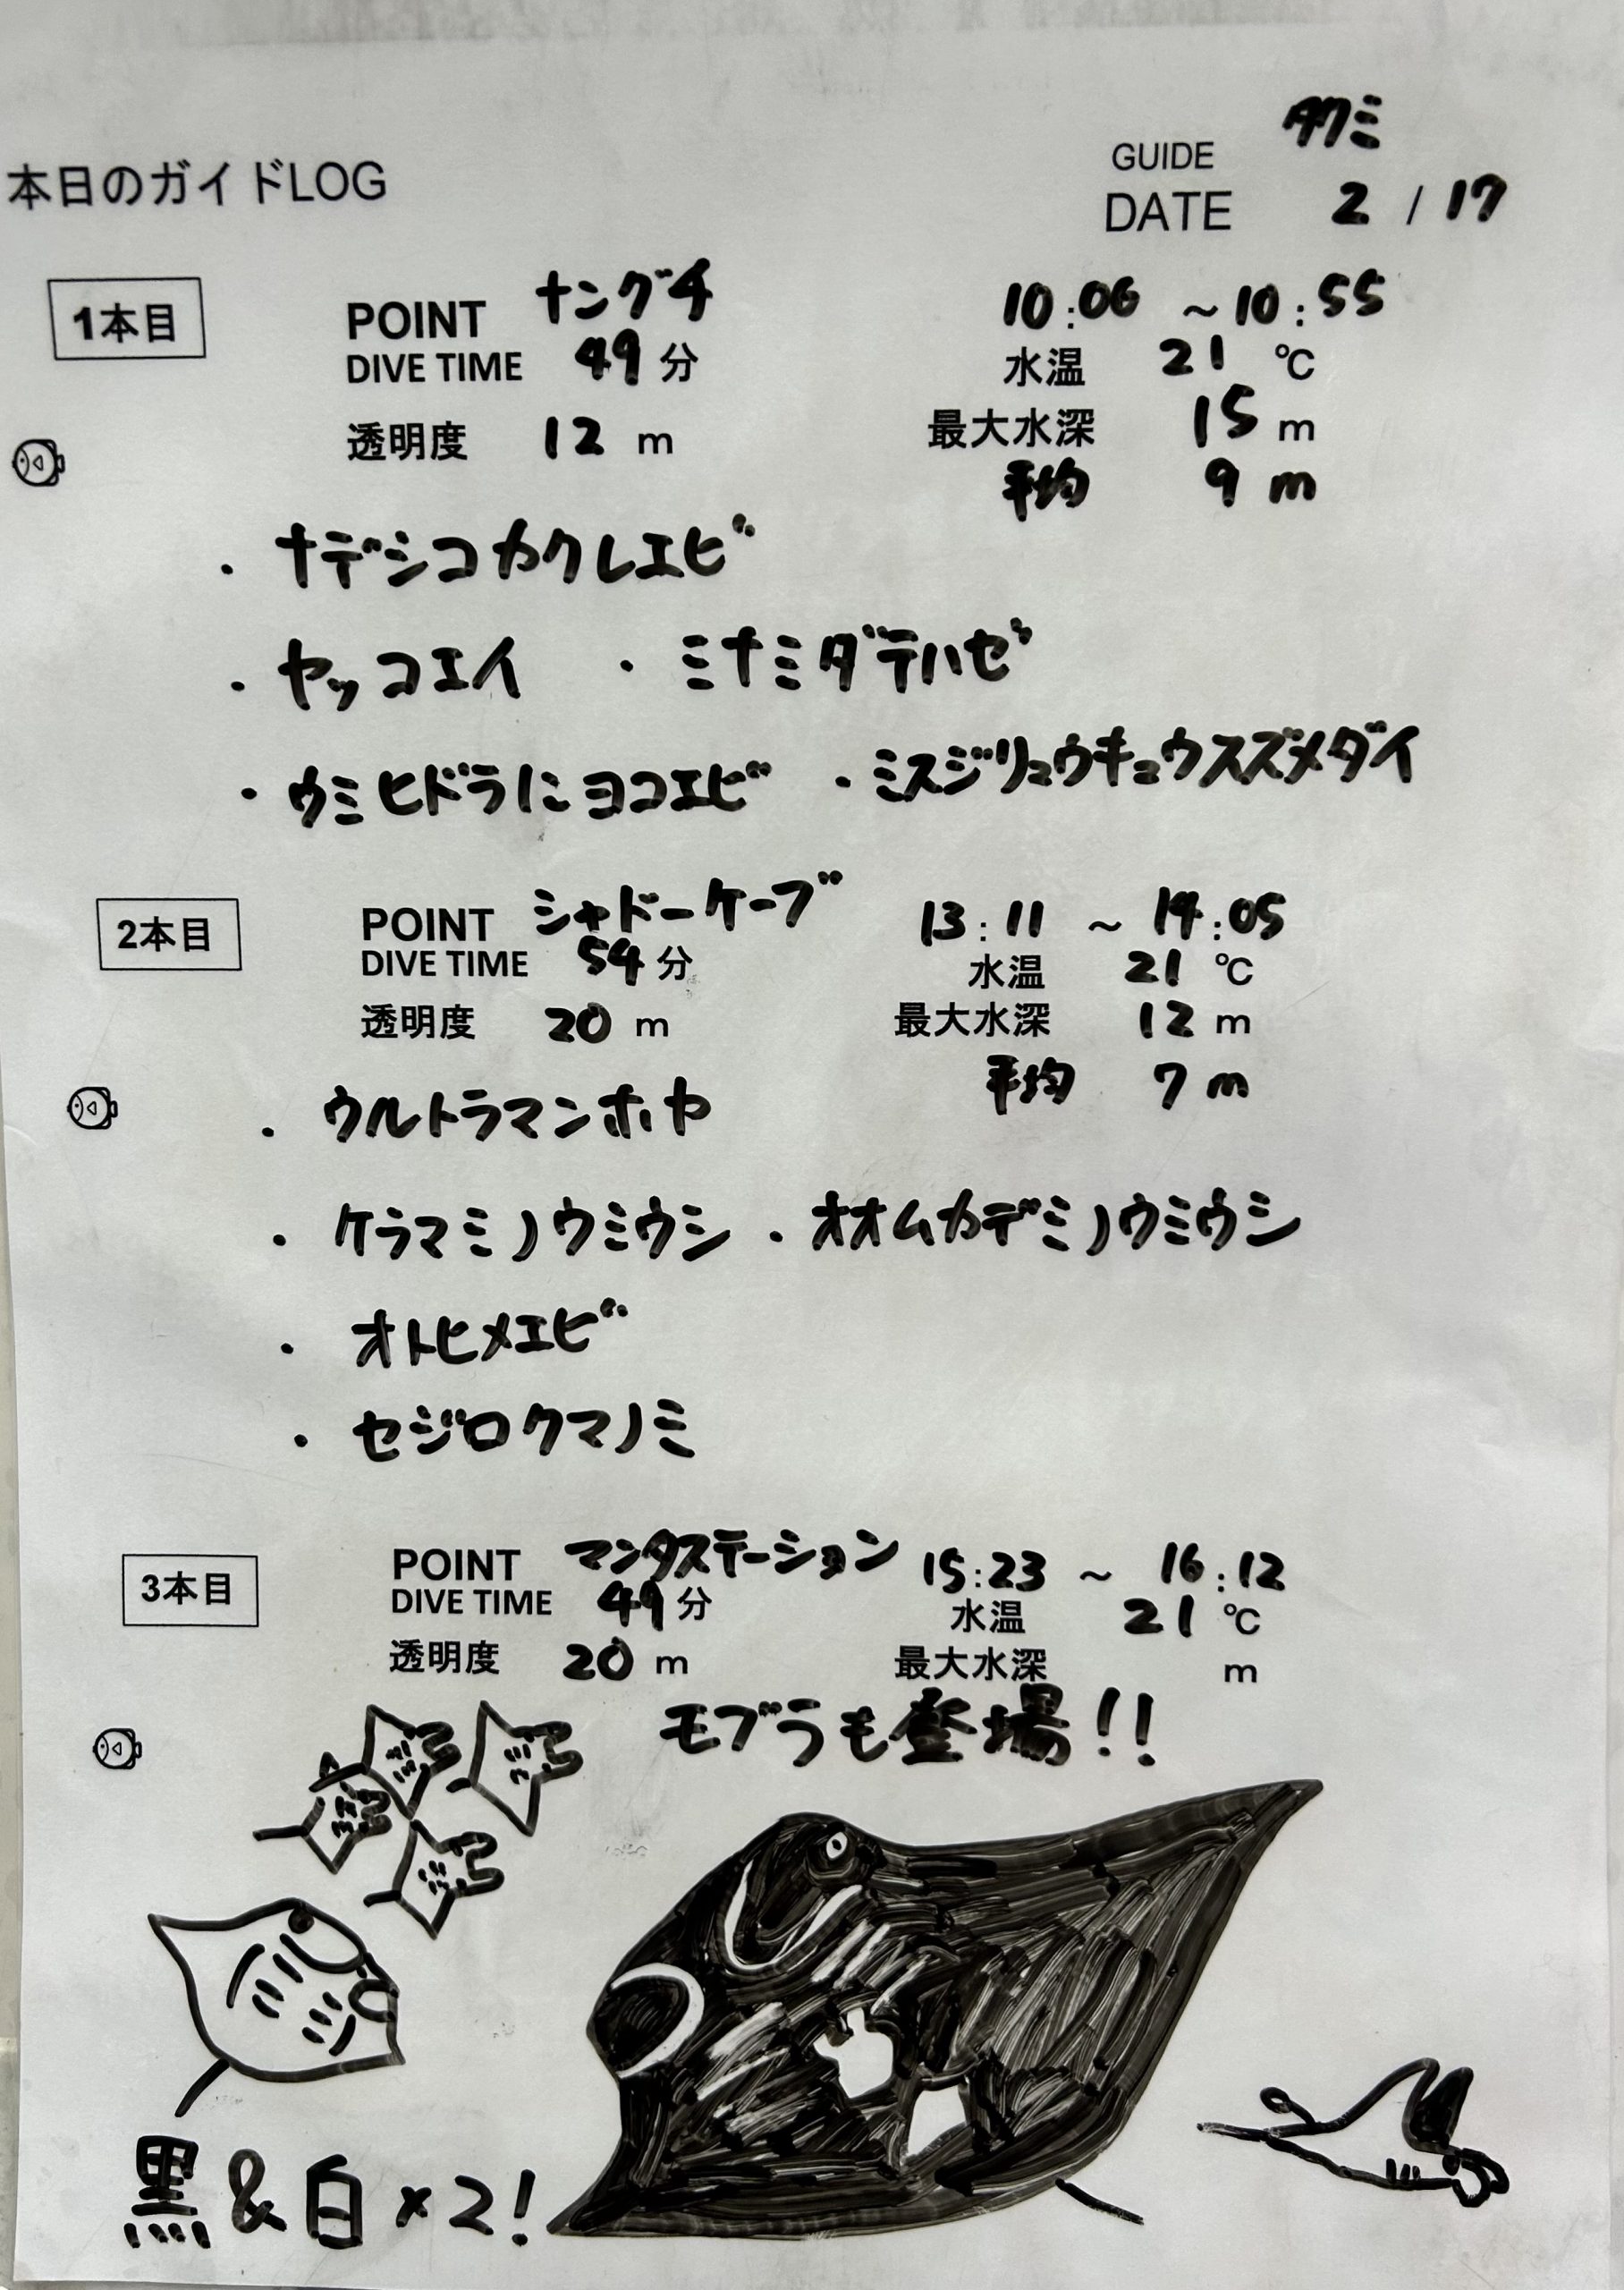 タクミ
本日のガイドLOG GUIDE
DATE 2 / 17
1本目 POINT ナングチ 10:06 ~ 10:55
DIVE TIME 49 分 水温 21 ℃
透明度 12 m 最大水深 15 m
平均 9 m
・ナデシコカクレエビ
・ヤッコエイ ・ミナミダテハゼ
・ウミヒドラにヨコエビ ・ミスジリュウキュウスズメダイ
2本目 POINT シャドーケーブ 13:11 ~ 14:05
DIVE TIME 54 分 水温 21 ℃
透明度 20 m 最大水深 12 m
平均 7 m
・ウルトラマンホヤ
・ケラマミノウミウシ ・オオムカデミノウミウシ
・オトヒメエビ
・セジロクマノミ
3本目 POINT マンタステーション 15:23 ~ 16:12
DIVE TIME 49 分 水温 21 ℃
透明度 20 m 最大水深 m
モブラも登場!!
黒&白×2!